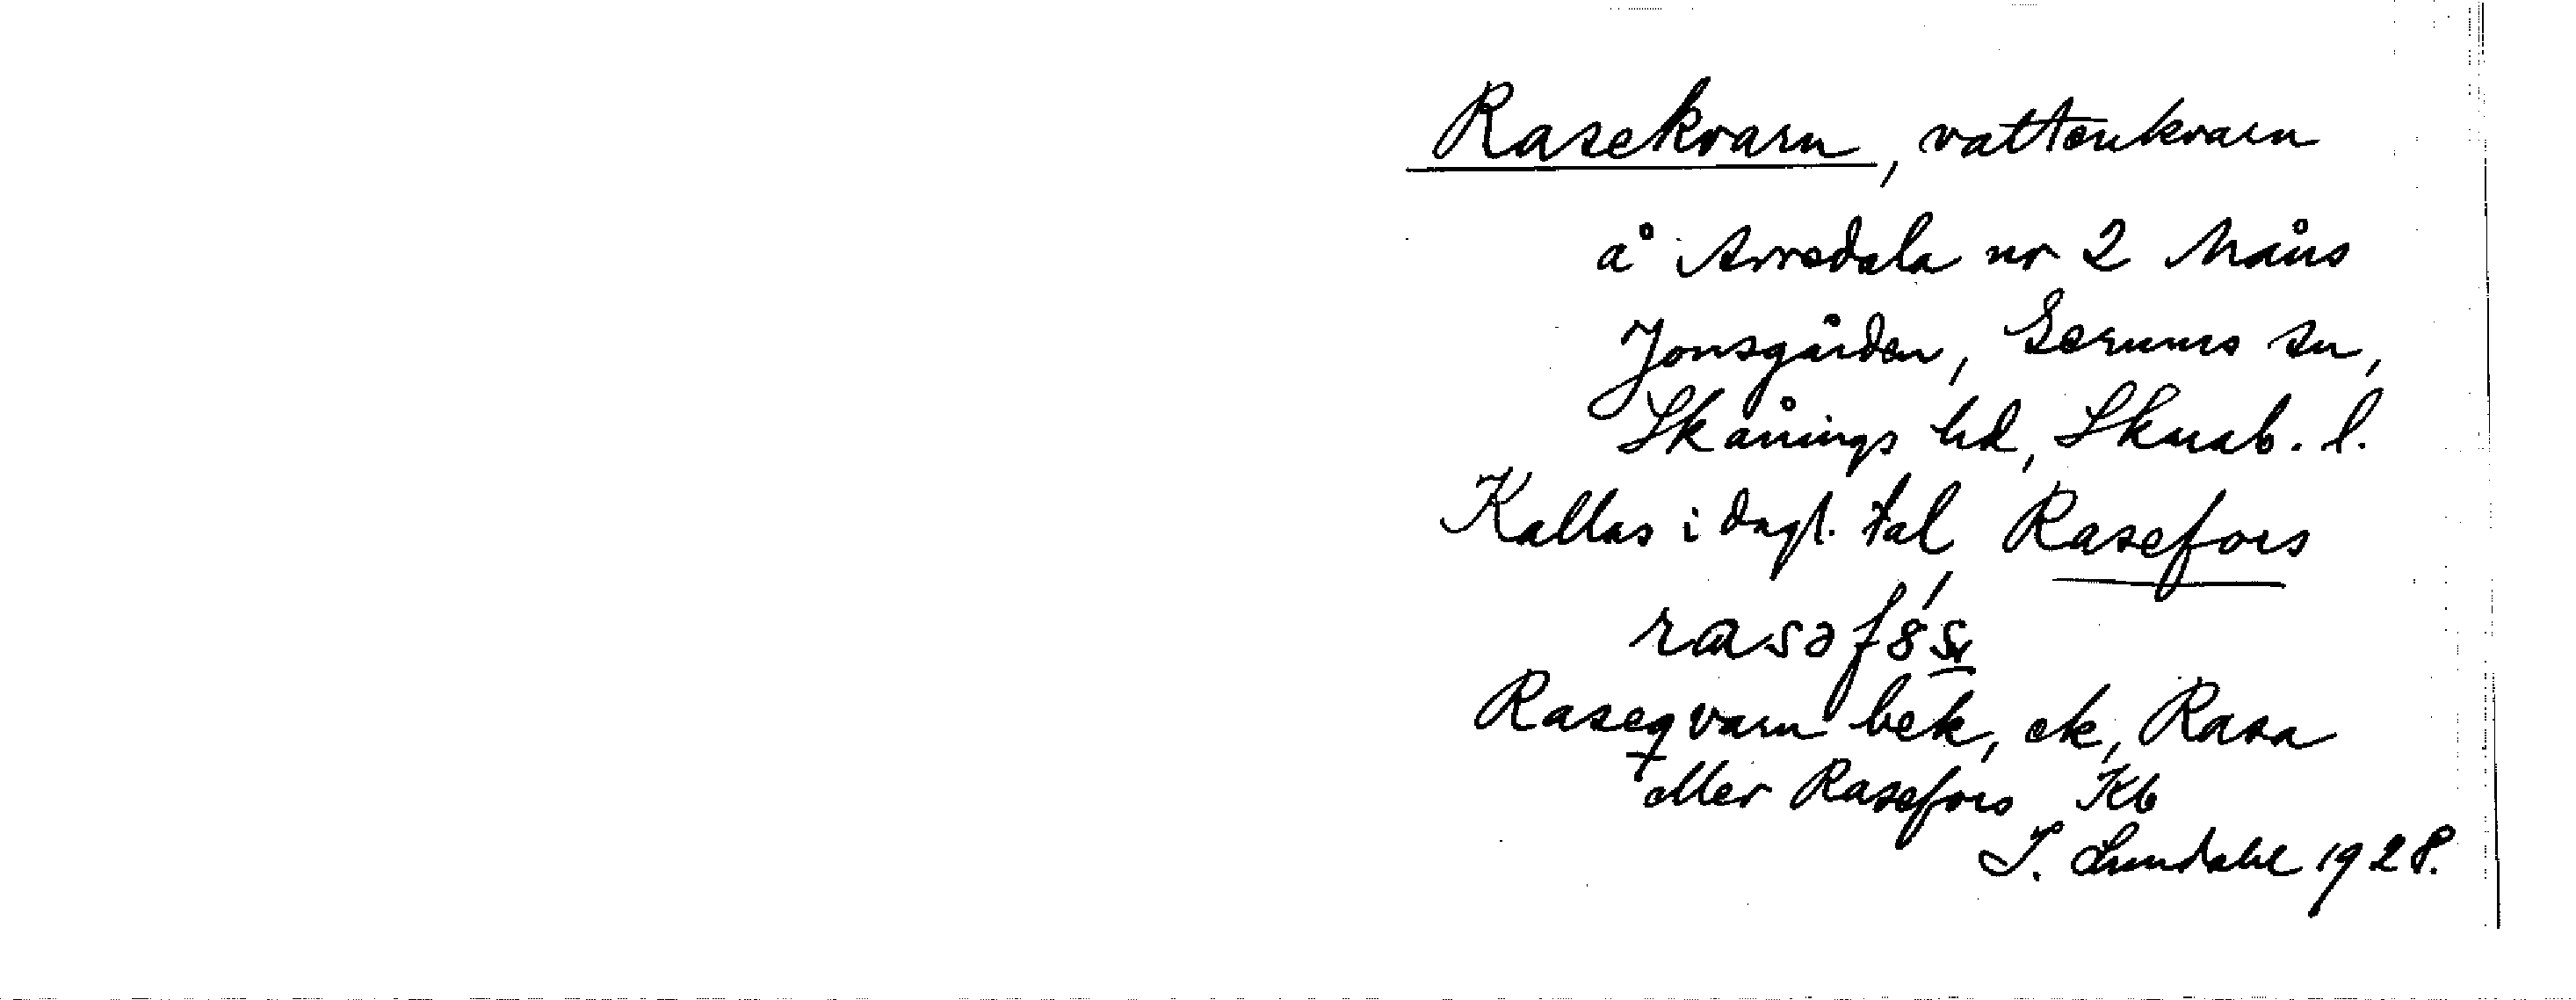 Rasekvarn, vattenkvarn
å Arvedala nr 2 Måns
Jonsgården, Gerums sn,
Skånings hd, Skarab. l.
Kallas i dagl. tal Rasefors
Raseqvarn bek, ek, Rasa
eller Rasefors Kb
I. Lundahl 1928.